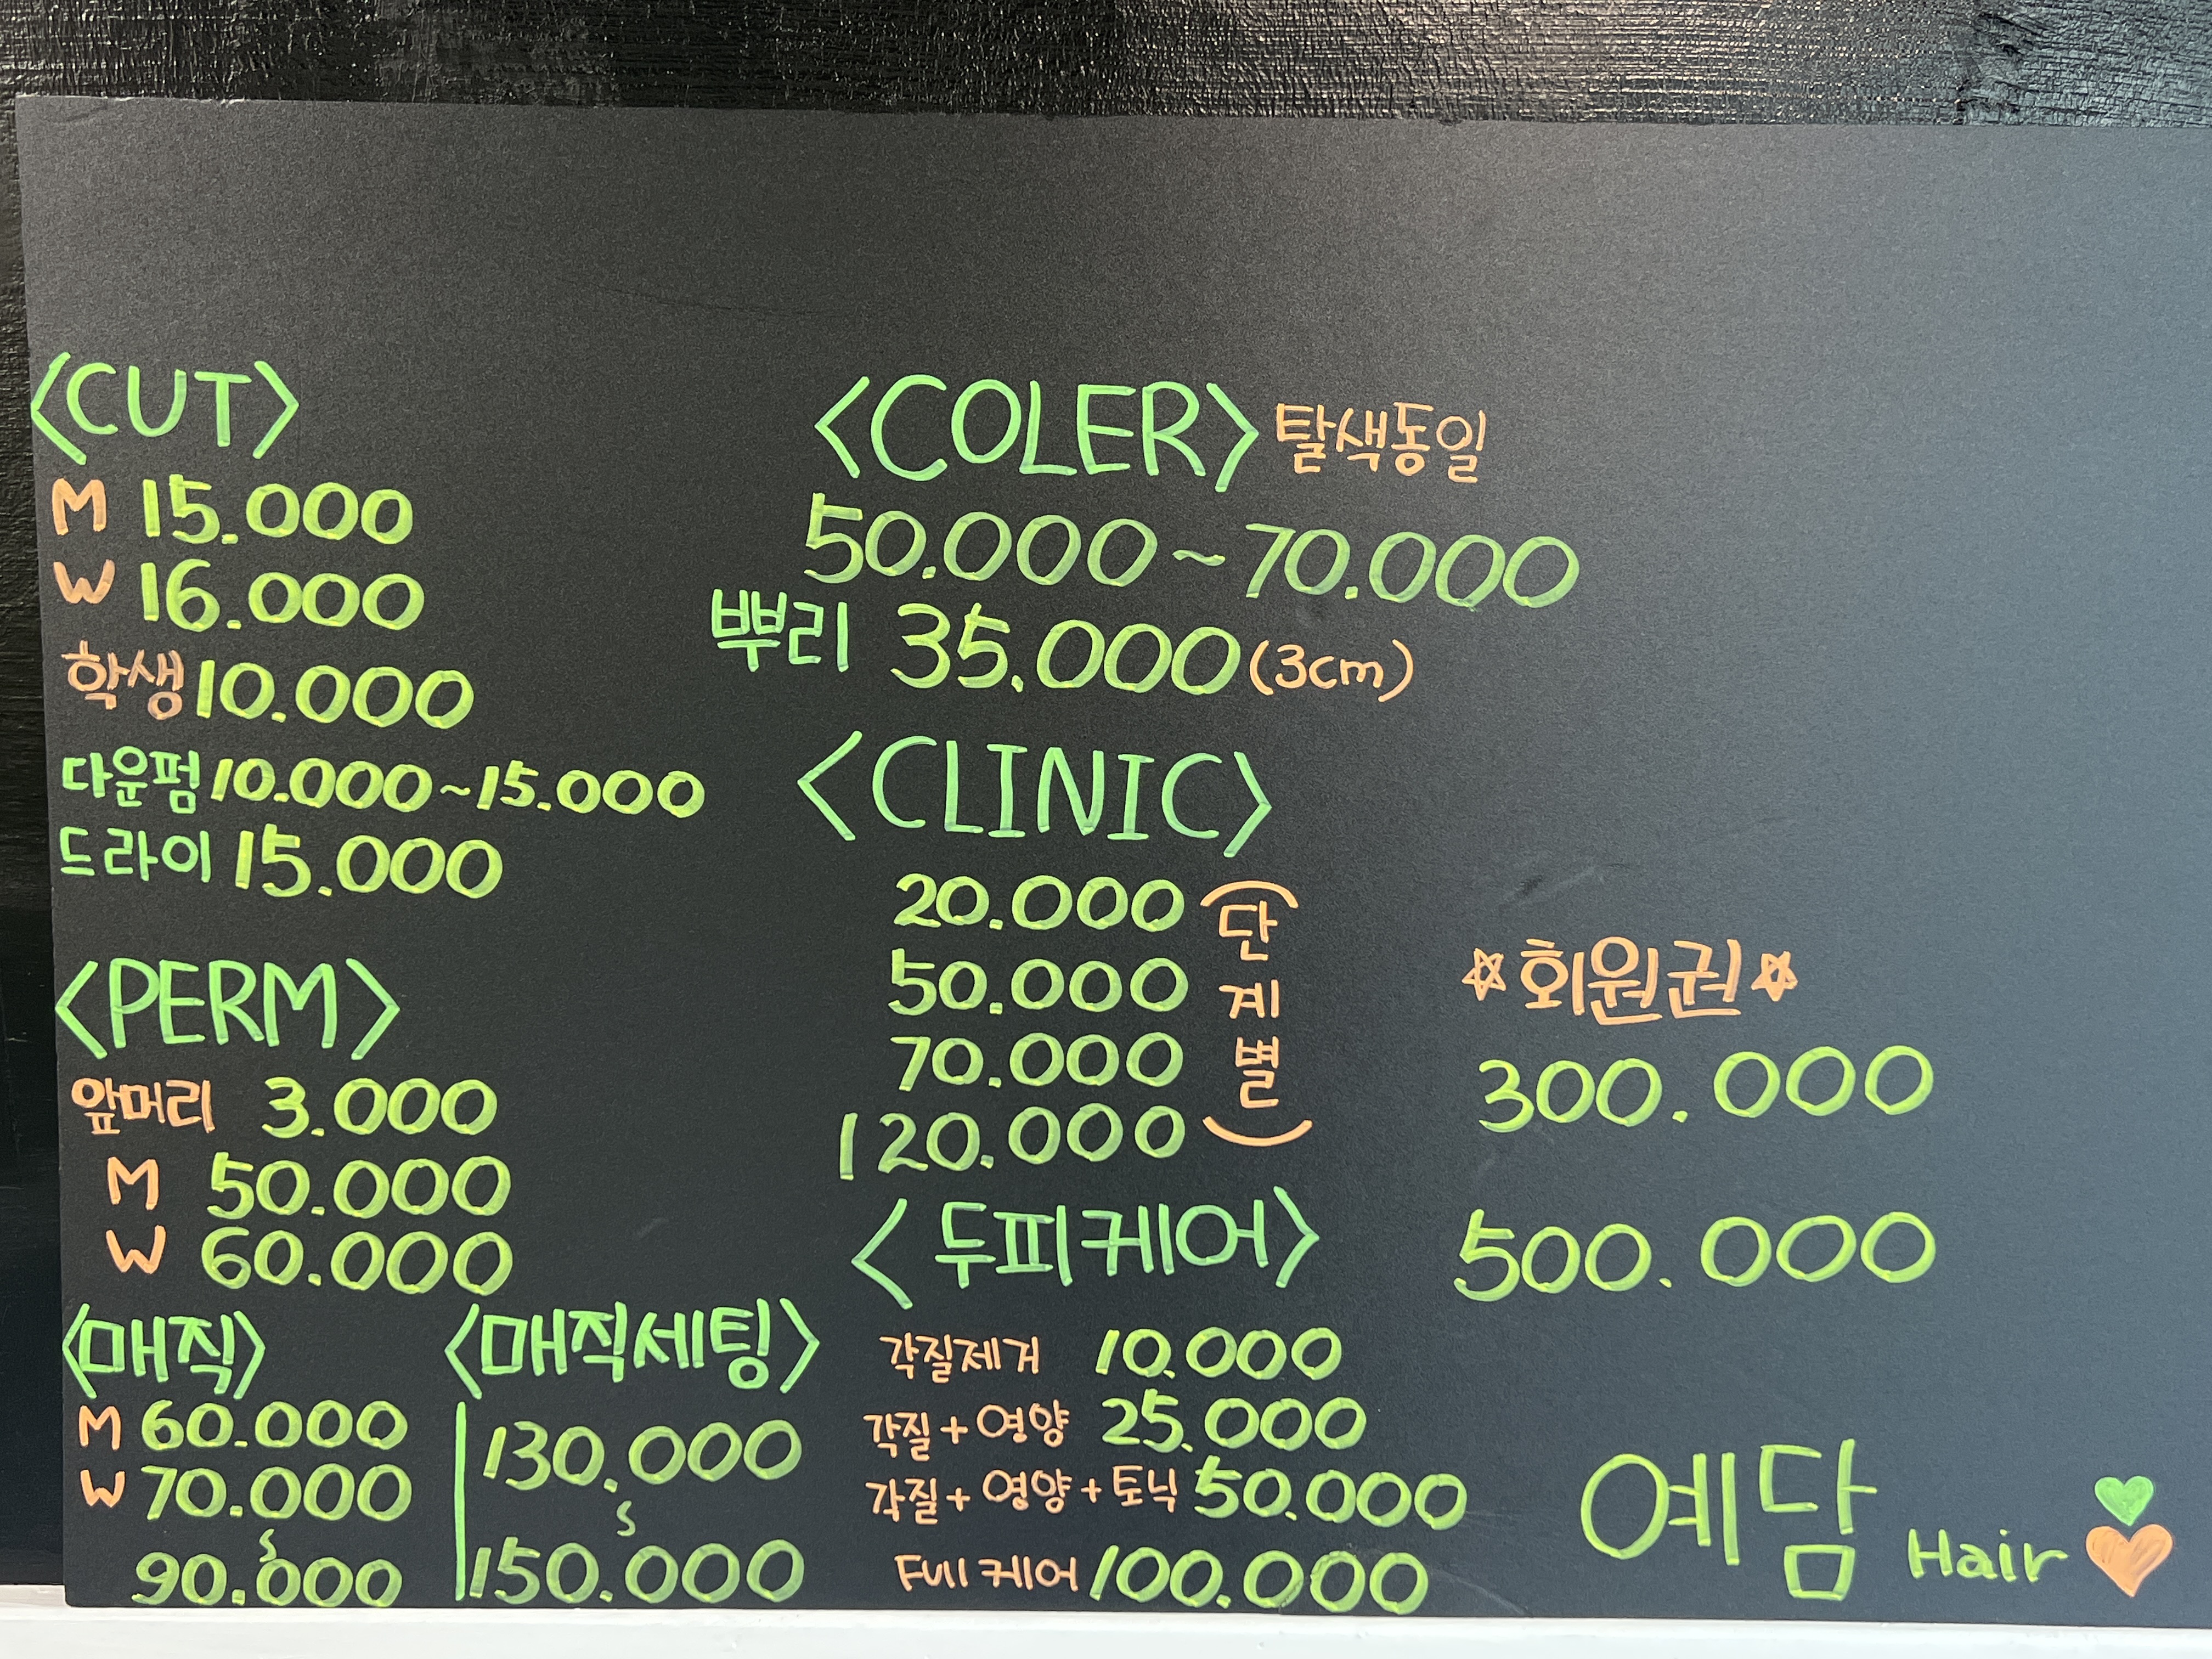 <CUT>
M 15.000
W 16.000
학생 10.000
다운펌 10.000~15.000
드라이 15.000
<PERM>
앞머리 3.000
M 50.000
W 60.000
<매직>
M 60.000
W 70.000
~
90.000
<매직세팅>
130.000
~
150.000
<COLER> 탈색동일
50.000~70.000
뿌리 35.000 (3cm)
<CLINIC>
20.000
50.000
70.000
120.000
(단계별)
<두피케어>
각질제거 10.000
각질+영양 25.000
각질+영양+토닉 50.000
Full 케어 100.000
☆회원권☆
300.000
500.000
예담 Hair